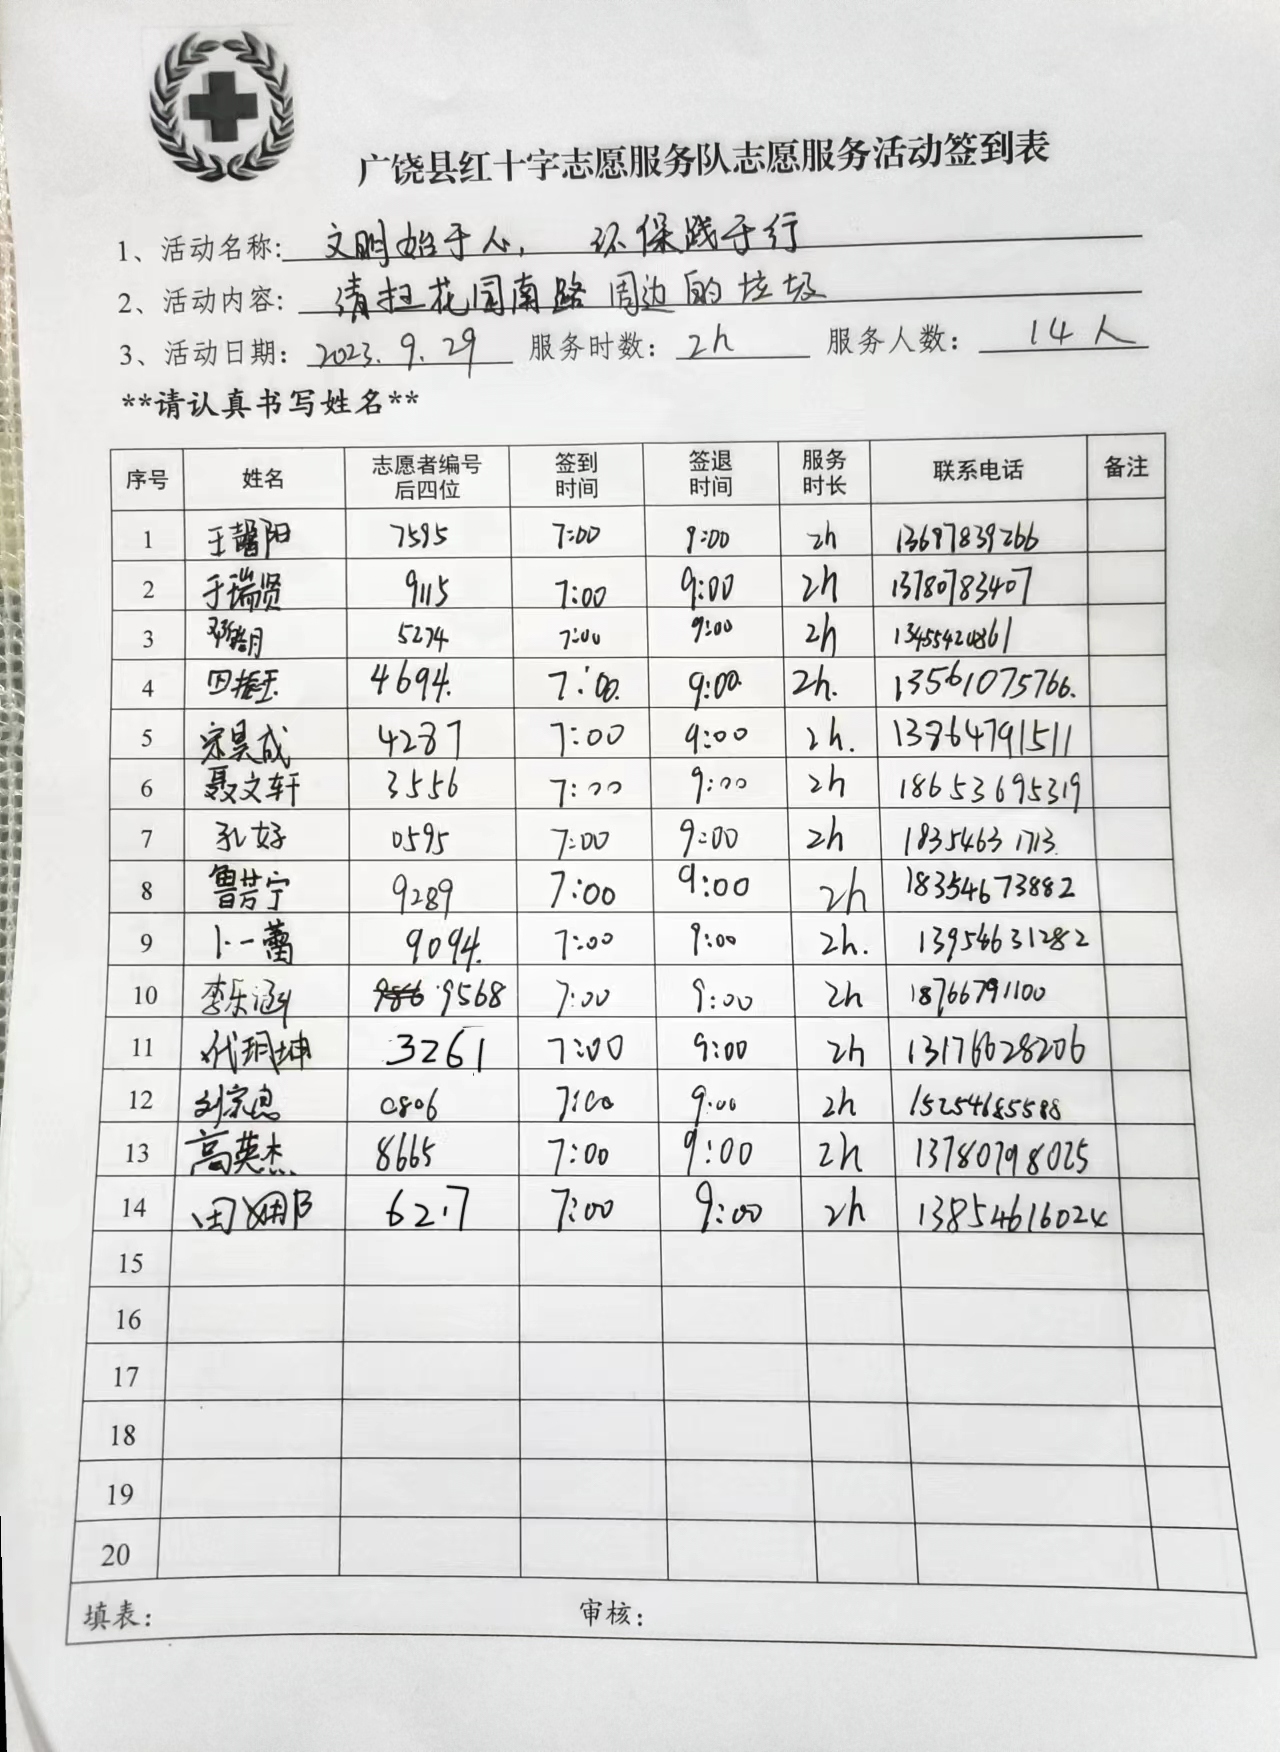 广饶县红十字志愿服务队志愿服务活动签到表
1、活动名称: 文明始于心, 环保践于行
2、活动内容: 清扫花园南路周边的垃圾
3、活动日期: 2023.9.29 服务时数: 2h 服务人数: 14人
**请认真书写姓名**
序号 姓名 志愿者编号后四位 签到时间 签退时间 服务时长 联系电话 备注
1 王馨阳 7595 7:00 9:00 2h 13697839266
2 于瑞贤 9115 7:00 9:00 2h 13780783407
3 邓皓月 5274 7:00 9:00 2h 13455420861
4 4694. 7:00. 9:00. 2h. 13561075766.
5 宋昊成 4287 7:00 9:00 2h. 13864791511
6 聂文轩 3556 7:00 9:00 2h 18653695319
7 孔好 0595 7:00 9:00 2h 18354631713.
8 鲁芳宁 9289 7:00 9:00 2h 18354673882
9 卜一蕾 9094. 7:00 9:00 2h. 13954631282
10 李乐涵 9568 7:00 9:00 2h 18766791100
11 代玥坤 3261 7:00 9:00 2h 13176628206
12 刘宗恩 0806 7:00 9:00 2h 15254685588
13 高英杰 8665 7:00 9:00 2h 13780798025
14 62.7 7:00 9:00 2h
15
16
17
18
19
20
填表: 审核: